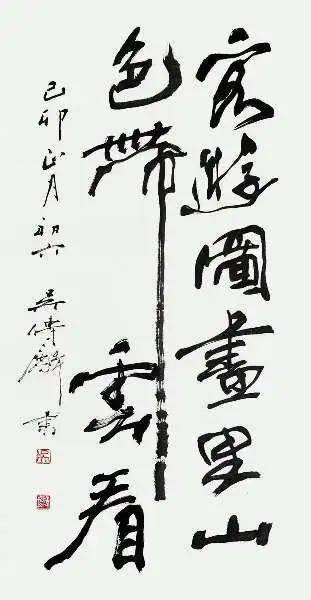 客遊圖畫里山
色帶雲看
己卯正月初六 吴傳麟書